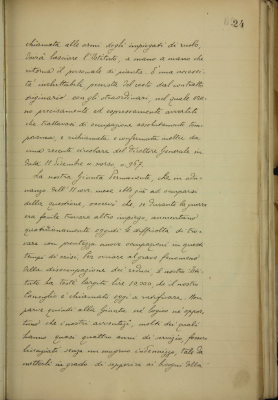 24
chiamata alle armi degli impiegati di ruolo,
dovrà lasciare l'Istituto, a mano a mano che
ritorna il personale di pianta. È una necessi-
tà ineluttabile prevista del resto dal contratto
originario con gli straordinari, nel quale era-
no precisamente ed espressamente avvertiti
che trattavasi di occupazione assolutamente tem-
poranea, e richiamata e confermata inoltre da
una recente circolare del Direttore Generale in
data 11 Dicembre u. scorso, n. 967.
La nostra Giunta Permanente, che in adu-
nanza dell' 11 corr. mese ebbe già ad occuparsi
della questione, osservò che, se durante la guerra
era facile trovare altro impiego, aumentano
quotidianamente oggidì le difficoltà di tro-
vare con prontezza nuove occupazioni in questi
tempi di crisi. Per ovviare al grave fenomeno
della disoccupazione dei reduci il nostro Isti-
tuto ha testè largito lire 10.000, che il nostro
Consiglio è chiamato oggi a ratificare. Non
parve quindi alla Giunta nè logico nè oppor-
tuno che i nostri avventizi, molti dei quali
hanno quasi quattro anni di servizio, fossero
licenziati senza un congruo indennizzo, tale da
metterli in grado di sopperire ai bisogni della